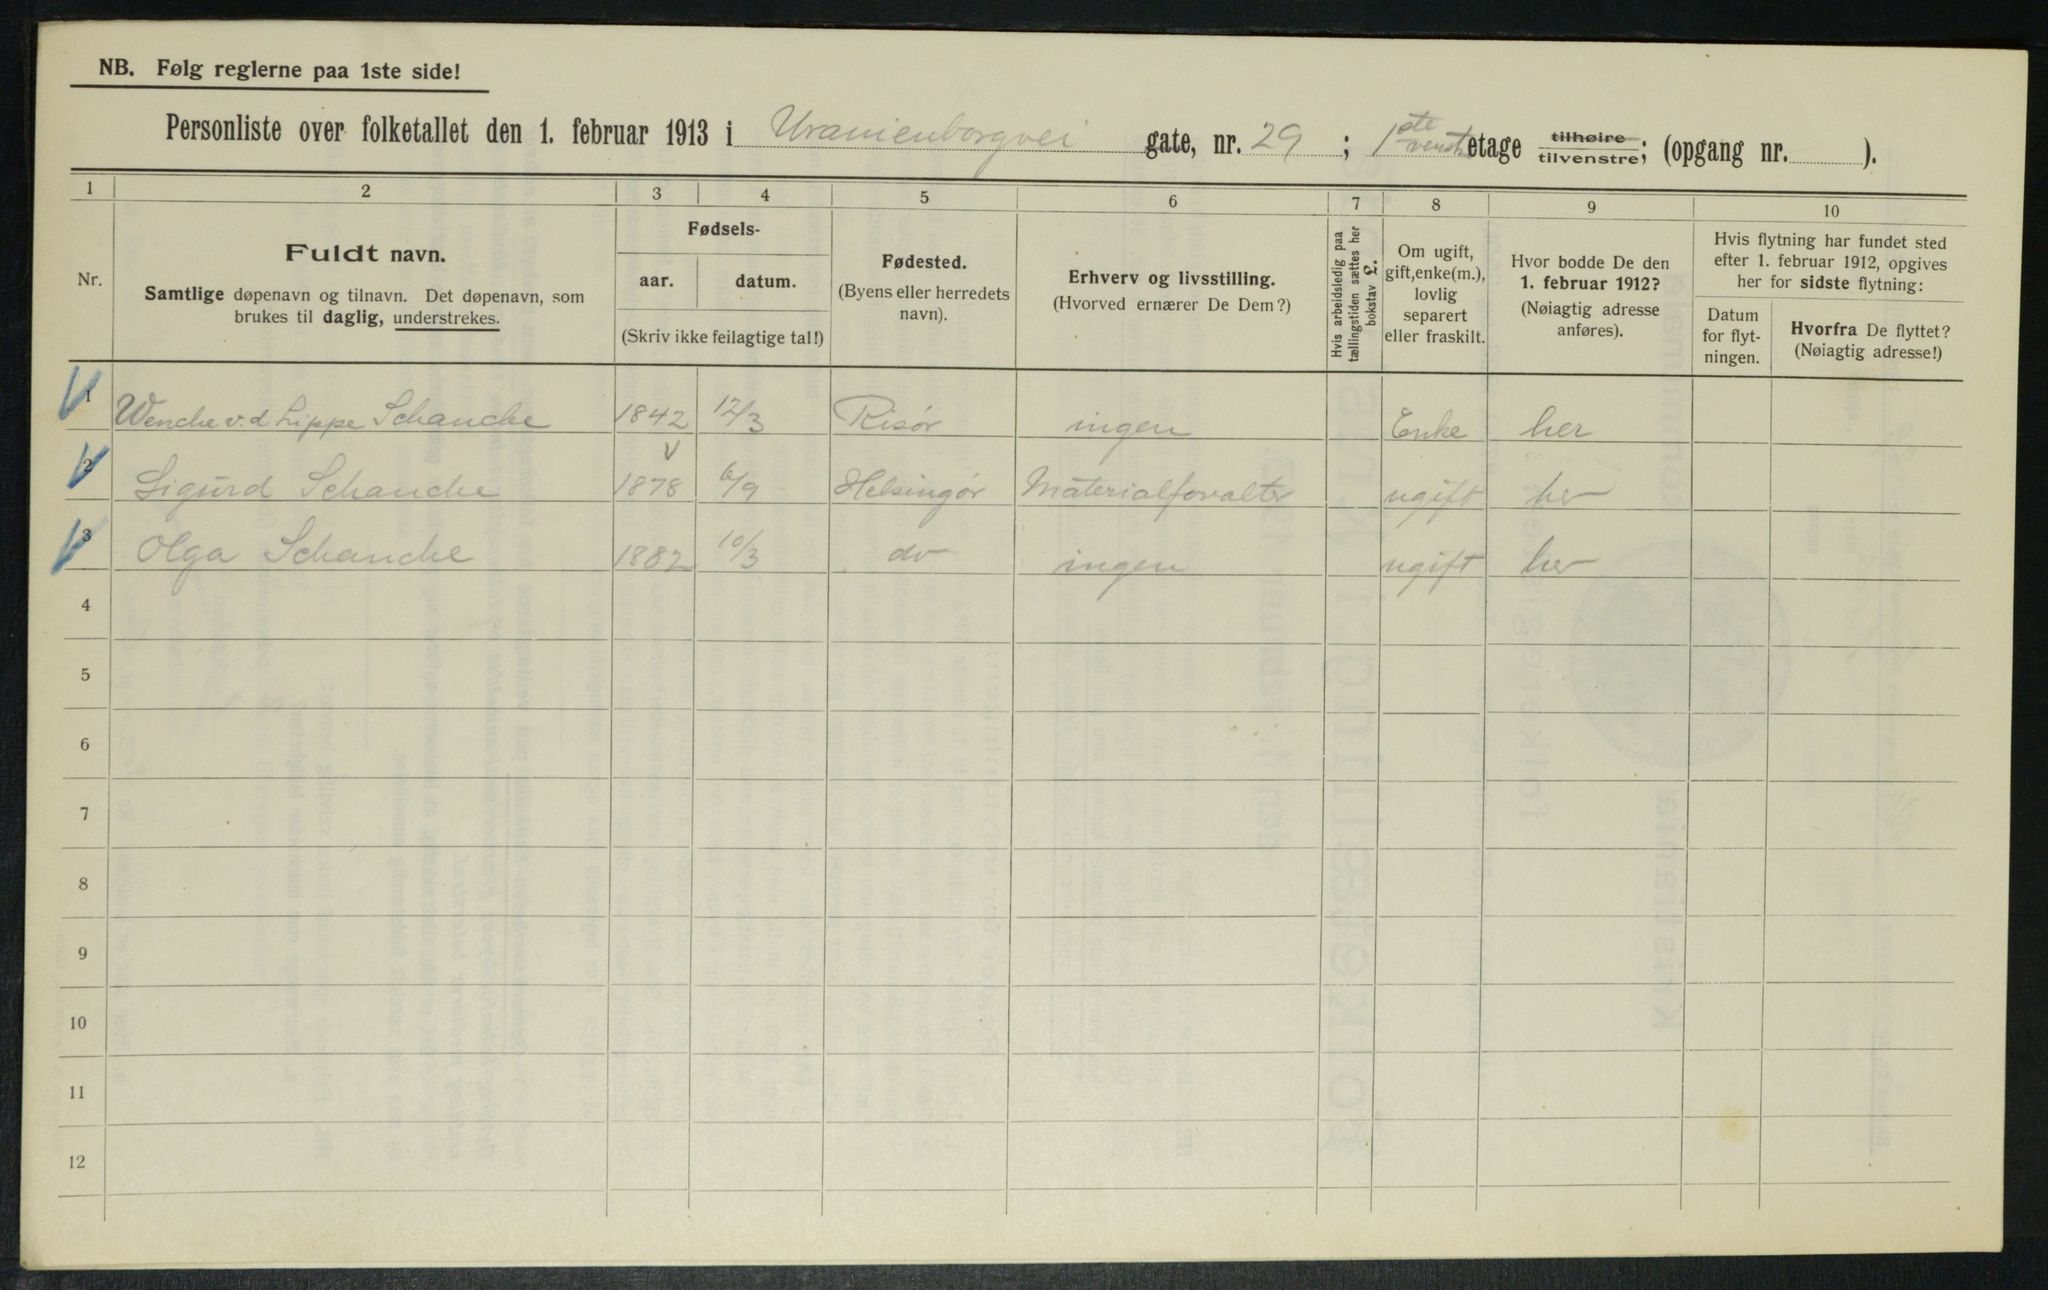 NB. Følg reglerne paa 1ste side!
Personliste over folketallet den 1. februar 1913 i Uranienborgvei gate, nr. 29; 1ste venstre etage tilhøire tilvenstre; (opgang nr. ).
1 2 3 4 5 6 7 8 9 10
Nr.
Fuldt navn.
Samtlige døpenavn og tilnavn. Det døpenavn, som
brukes til daglig, understrekes.
Fødsels-
aar. datum.
(Skriv ikke feilagtige tal!)
Fødested.
(Byens eller herredets
navn).
Erhverv og livsstilling.
(Hvorved ernærer De Dem?)
Hvis arbeidsledig paa
tællingstiden sættes her
bokstav L.
Om ugift,
gift, enke(m.),
lovlig
separert
eller fraskilt.
Hvor bodde De den
1. februar 1912?
(Nøiagtig adresse
anføres).
Hvis flytning har fundet sted
efter 1. februar 1912, opgives
her for sidste flytning:
Datum
for flyt-
ningen.
Hvorfra De flyttet?
(Nøiagtig adresse!)
1 Wenche v.d Lippe Schanche 1842 12/3 Risør ingen Enke her
2 Sigurd Schanche 1878 6/9 Helsingør Materialforvalter ugift her
3 Olga Schanche 1882 10/3 do ingen ugift her
4
5
6
7
8
9
10
11
12